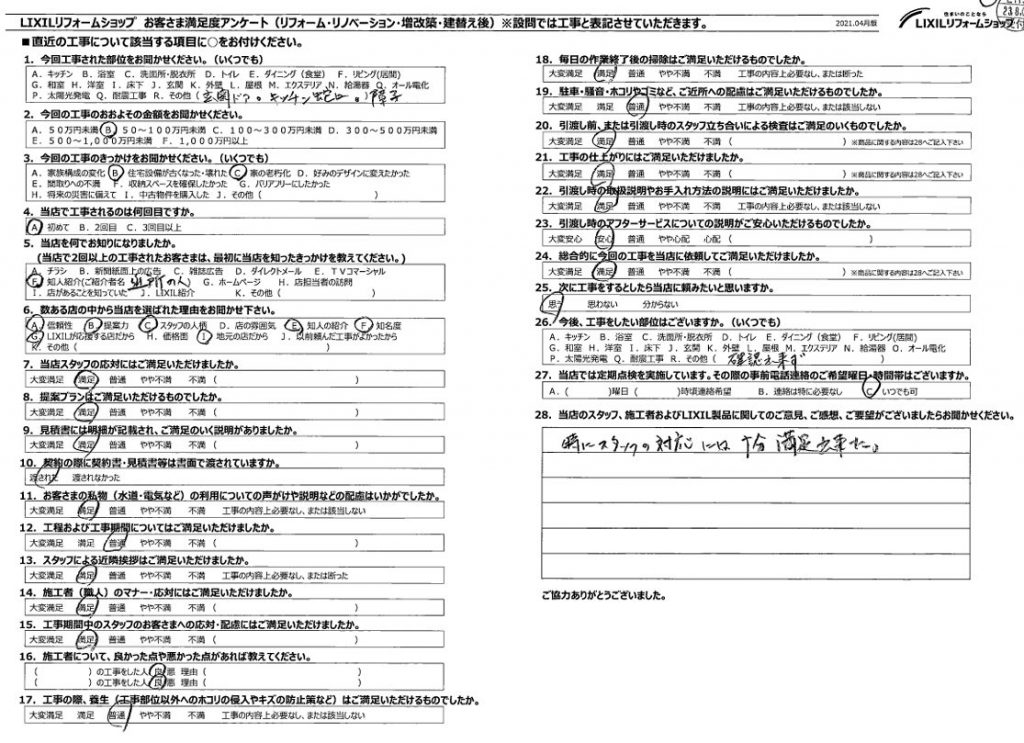 LIXILリフォームショップ お客さま満足度アンケート（リフォーム・リノベーション・増改築・建替え後）※設問では工事と表記させていただきます。
2021.04月版
住まいのことなら
LIXILリフォームショップ
23.8.
付
■直近の工事について該当する項目に○をお付けください。
1．今回工事された部位をお聞かせください。（いくつでも）
A．キッチン B．浴室 C．洗面所・脱衣所 D．トイレ E．ダイニング（食堂） F．リビング(居間)
G．和室 H．洋室 I．床下 J．玄関 K．外壁 L．屋根 M．エクステリア N．給湯器 O．オール電化
P．太陽光発電 Q．耐震工事 R．その他（玄関ドア。キッチン蛇口。障子
2．今回の工事のおおよその金額をお聞かせください。
A．50万円未満 B．50～100万円未満 C．100～300万円未満 D．300～500万円未満
E．500～1,000万円未満 F．1,000万円以上
3．今回の工事のきっかけをお聞かせください。（いくつでも）
A．家族構成の変化 B．住宅設備が古くなった・壊れた C．家の老朽化 D．好みのデザインに変えたかった
E．間取りへの不満 F．収納スペースを確保したかった G．バリアフリーにしたかった
H．将来の災害に備えて I．中古物件を購入した J．その他（ ）
4．当店で工事されるのは何回目ですか。
A．初めて B．2回目 C．3回目以上
5．当店を何でお知りになりましたか。
(当店で2回以上の工事されたお客さまは、最初に当店を知ったきっかけを教えてください。)
A．チラシ B．新聞紙面上の広告 C．雑誌広告 D．ダイレクトメール E．TVコマーシャル
F．知人紹介(ご紹介者名 近所の人) G．ホームページ H．店担当者の訪問
I．店があることを知っていた J．LIXIL紹介 K．その他（ ）
6．数ある店の中から当店を選ばれた理由をお聞かせ下さい。
A．信頼性 B．提案力 C．スタッフの人柄 D．店の雰囲気 E．知人の紹介 F．知名度
G．LIXILが応援する店だから H．価格面 I．地元の店だから J．以前頼んだ工事がよかったから
K．その他（ ）
7．当店スタッフの応対にはご満足いただけましたか。
大変満足 満足 普通 やや不満 不満（ ）
8．提案プランはご満足いただけるものでしたか。
大変満足 満足 普通 やや不満 不満（ ）
9．見積書には明細が記載され、ご満足のいく説明がありましたか。
大変満足 満足 普通 やや不満 不満（ ）
10．契約の際に契約書・見積書等は書面で渡されていますか。
渡された 渡されなかった
11．お客さまの私物（水道・電気など）の利用についての声がけや説明などの配慮はいかがでしたか。
大変満足 満足 普通 やや不満 不満 工事の内容上必要なし、または該当しない
12．工程および工事期間についてはご満足いただけましたか。
大変満足 満足 普通 やや不満 不満（ ）
13．スタッフによる近隣挨拶はご満足いただけましたか。
大変満足 満足 普通 やや不満 不満 工事の内容上必要なし、または断った
14．施工者（職人）のマナー・応対にはご満足いただけましたか。
大変満足 満足 普通 やや不満 不満（ ）
15．工事期間中のスタッフのお客さまへの応対・配慮にはご満足いただけましたか。
大変満足 満足 普通 やや不満 不満（ ）
16．施工者について、良かった点や悪かった点があれば教えてください。
（ ）の工事をした人 良 悪 理由（ ）
（ ）の工事をした人 良 悪 理由（ ）
17．工事の際、養生（工事部位以外へのホコリの侵入やキズの防止策など）はご満足いただけるものでしたか。
大変満足 満足 普通 やや不満 不満 工事の内容上必要なし、または該当しない
18．毎日の作業終了後の掃除はご満足いただけるものでしたか。
大変満足 満足 普通 やや不満 不満 工事の内容上必要なし、または断った
19．駐車・騒音・ホコリやゴミなど、ご近所への配慮はご満足いただけるものでしたか。
大変満足 満足 普通 やや不満 不満 工事の内容上必要なし、または該当しない
20．引渡し前、または引渡し時のスタッフ立ち合いによる検査はご満足のいくものでしたか。
大変満足 満足 普通 やや不満 不満（ ）※商品に関する内容は28へご記入下さい
21．工事の仕上がりにはご満足いただけましたか。
大変満足 満足 普通 やや不満 不満（ ）※商品に関する内容は28へご記入下さい
22．引渡し時の取扱説明やお手入れ方法の説明にはご満足いただけましたか。
大変満足 満足 普通 やや不満 不満 工事の内容上必要なし、または該当しない
23．引渡し時のアフターサービスについての説明がご安心いただけるものでしたか。
大変安心 安心 普通 やや心配 心配（ ）
24．総合的に今回の工事を当店に依頼してご満足いただけましたか。
大変満足 満足 普通 やや不満 不満（ ）※商品に関する内容は28へご記入下さい
25．次に工事をするとしたら当店に頼みたいと思いますか。
思う 思わない 分からない
26．今後、工事をしたい部位はございますか。（いくつでも）
A．キッチン B．浴室 C．洗面所・脱衣所 D．トイレ E．ダイニング（食堂） F．リビング(居間)
G．和室 H．洋室 I．床下 J．玄関 K．外壁 L．屋根 M．エクステリア N．給湯器 O．オール電化
P．太陽光発電 Q．耐震工事 R．その他（ 確認出来ず ）
27．当店では定期点検を実施しています。その際の事前電話連絡のご希望曜日・時間帯はございますか。
A．（ ）曜日（ ）時頃連絡希望 B．連絡は特に必要なし C．いつでも可
28．当店のスタッフ、施工者およびLIXIL製品に関してのご意見、ご感想、ご要望がございましたらお聞かせください。
特にスタッフの対応には十分満足出来た。
ご協力ありがとうございました。